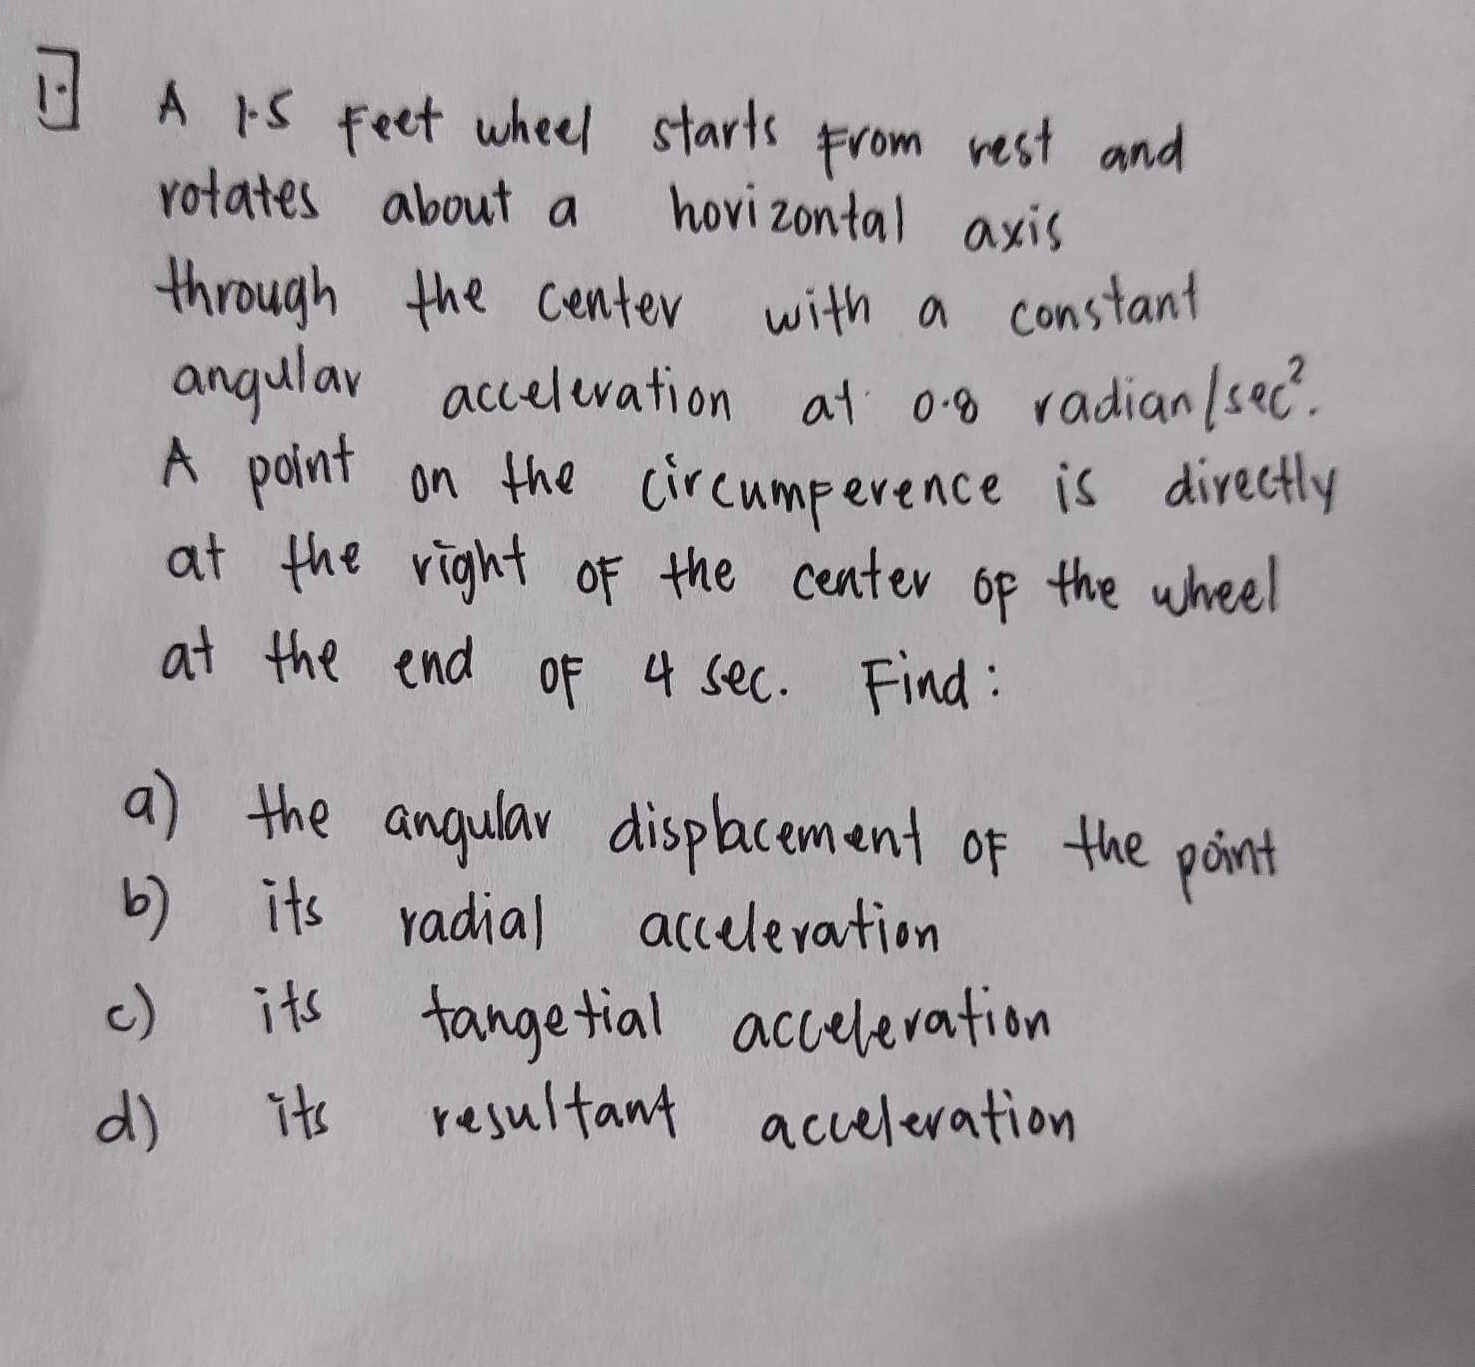 1.]
A 1.5 feet wheel starts from rest and
rotates about a horizontal axis
through the center with a constant
angular acceleration at 0.8 radian/sec².
A point on the circumference is directly
at the right of the center of the wheel
at the end of 4 sec. Find:
a) the angular displacement of the point
b) its radial acceleration
c) its tangetial acceleration
d) its resultant acceleration